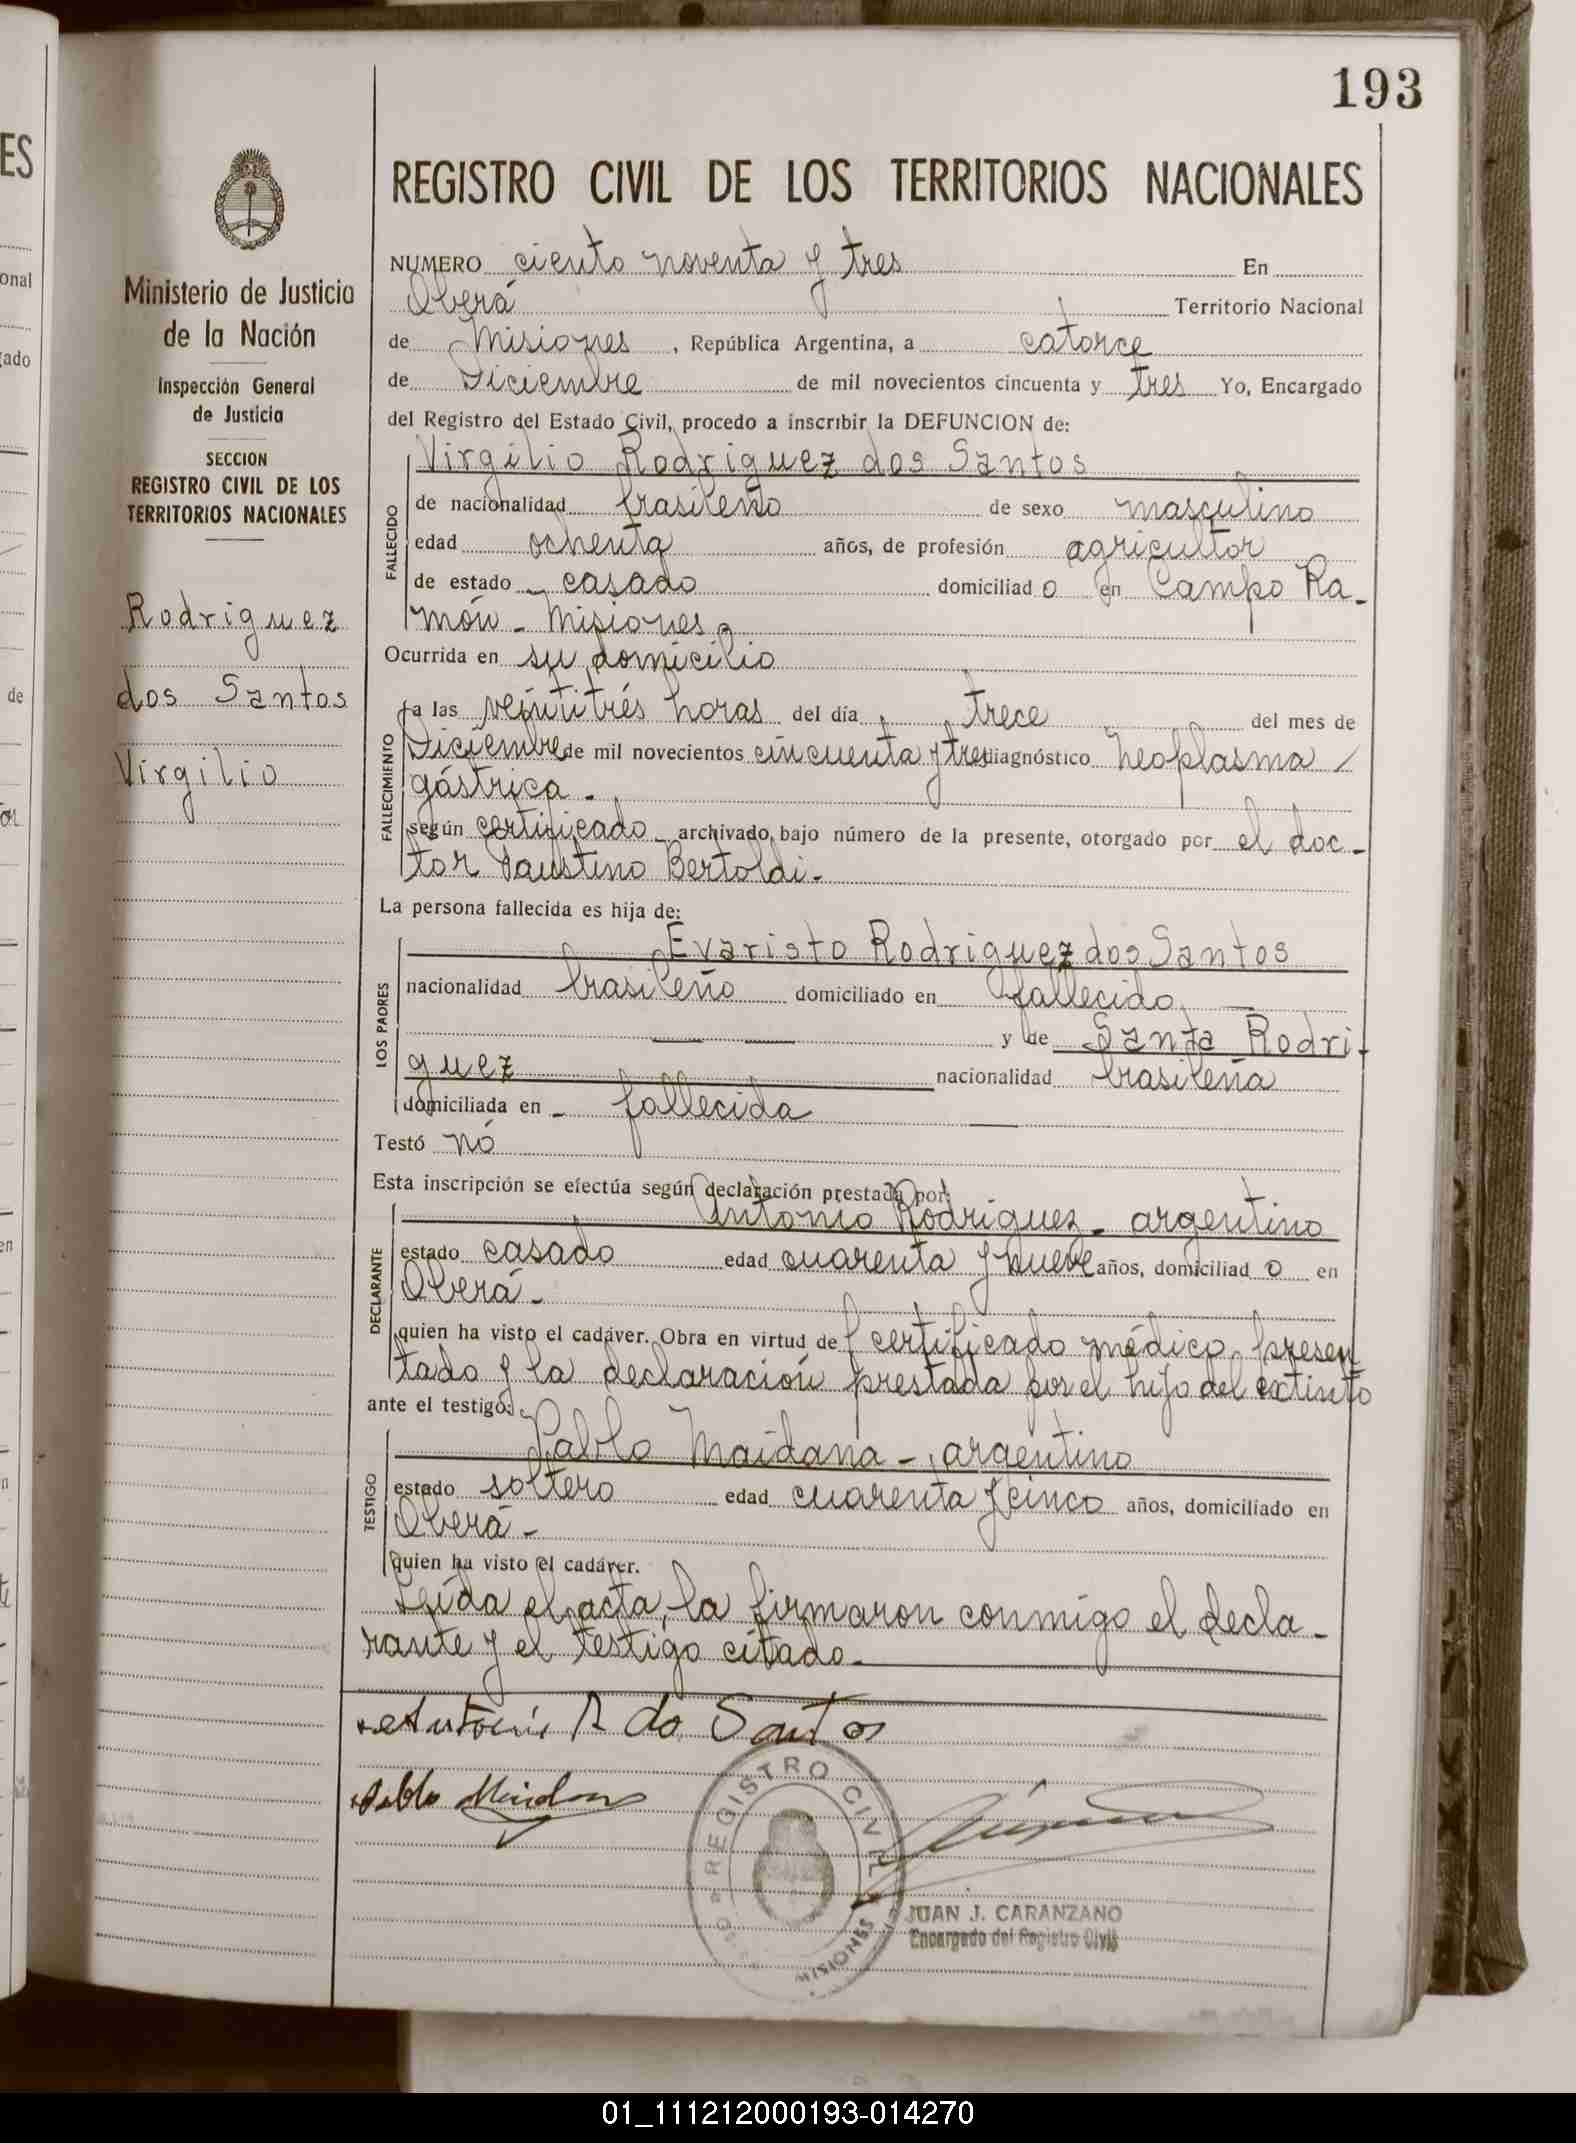 193
REGISTRO CIVIL DE LOS TERRITORIOS NACIONALES
Ministerio de Justicia
de la Nación
Inspección General
de Justicia
SECCION
REGISTRO CIVIL DE LOS
TERRITORIOS NACIONALES
Rodriguez
dos Santos
Virgilio
NUMERO ciento noventa y tres En
Oberá Territorio Nacional
de Misiones, República Argentina, a catorce
de Diciembre de mil novecientos cincuenta y tres Yo, Encargado
del Registro del Estado Civil, procedo a inscribir la DEFUNCION de:
Virgilio Rodriguez dos Santos
FALLECIDO
de nacionalidad brasileño de sexo masculino
edad ochenta años, de profesión agricultor
de estado casado domiciliado en Campo Ra-
món - Misiones
Ocurrida en su domicilio
FALLECIMIENTO
a las veintitrés horas del día trece del mes de
Diciembre de mil novecientos cincuenta y tres diagnóstico neoplasma
gástrica -
según certificado archivado bajo número de la presente, otorgado por el doc-
tor Faustino Bertoldi -
La persona fallecida es hija de:
LOS PADRES
Evaristo Rodriguez dos Santos
nacionalidad brasileño domiciliado en fallecido
y de Santa Rodri-
guez nacionalidad brasileña
domiciliada en - fallecida
Testó nó
Esta inscripción se efectúa según declaración prestada por:
DECLARANTE
Antonio Rodriguez - argentino
estado casado edad cuarenta y nueve años, domiciliado en
Oberá -
quien ha visto el cadáver. Obra en virtud de certificado médico presen
tado y la declaración prestada por el hijo del extinto
ante el testigo:
TESTIGO
Pablo Maidana - argentino
estado soltero edad cuarenta y cinco años, domiciliado en
Oberá -
quien ha visto el cadáver.
Leída el acta, la firmaron conmigo el decla-
rante y el testigo citado -
Antonio R do Santos
Pablo Maidana
REGISTRO CIVIL
MISIONES
JUAN J. CARANZANO
Encargado del Registro Civil
01_111212000193-014270